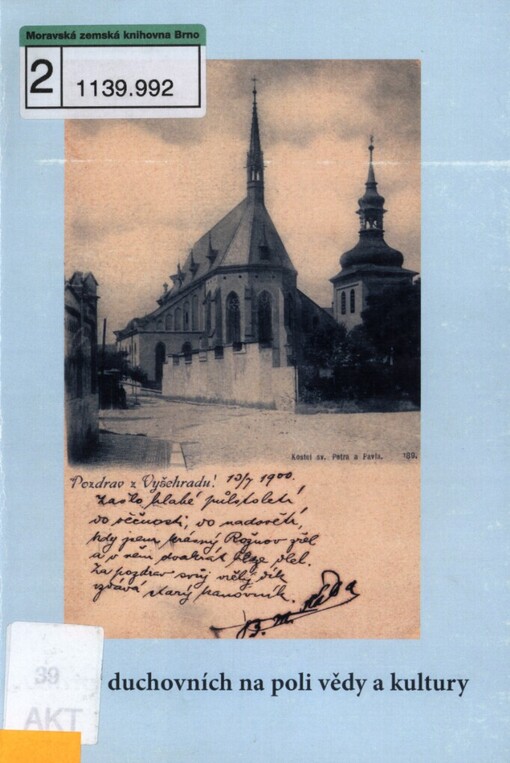 Moravská zemská knihovna Brno
2
1139.992
Kostel sv. Petra a Pavla.
189.
Pozdrav z Vyšehradu! 13/7 1900.
Zašlo blahé půlstoletí
do věčnosti, do nadsvětí,
kdy jsem krásný Rožnov zřel
a v něm dvakrát lže dlel.
Za pozdrav svůj vřelý dík
vzdává starý kanovník.
39
AKT
duchovních na poli vědy a kultury